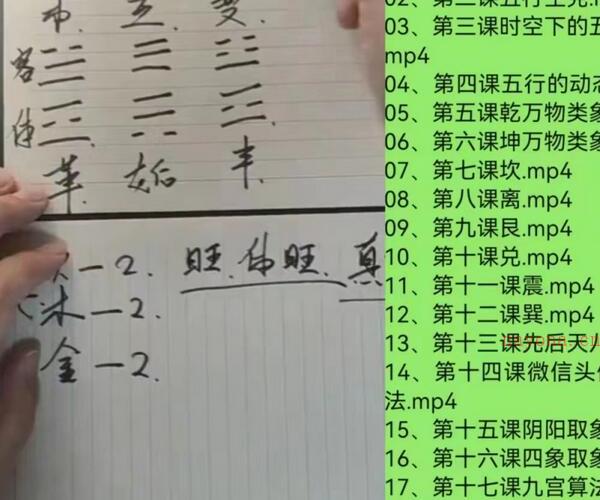 互 变
客
体
革. 姤 丰.
一2. 旺.体旺.真
木一2.
金一2.
03、第三课时空下的五
mp4
04、第四课五行的动态
05、第五课乾万物类象
06、第六课坤万物类象
07、第七课坎.mp4
08、第八课离.mp4
09、第九课艮.mp4
10、第十课兑.mp4
11、第十一课震.mp4
12、第十二课巽.mp4
13、第十三课先后天八
14、第十四课微信头像
法.mp4
15、第十五课阴阳取象
16、第十六课四象取象
17、第十七课九宫算法